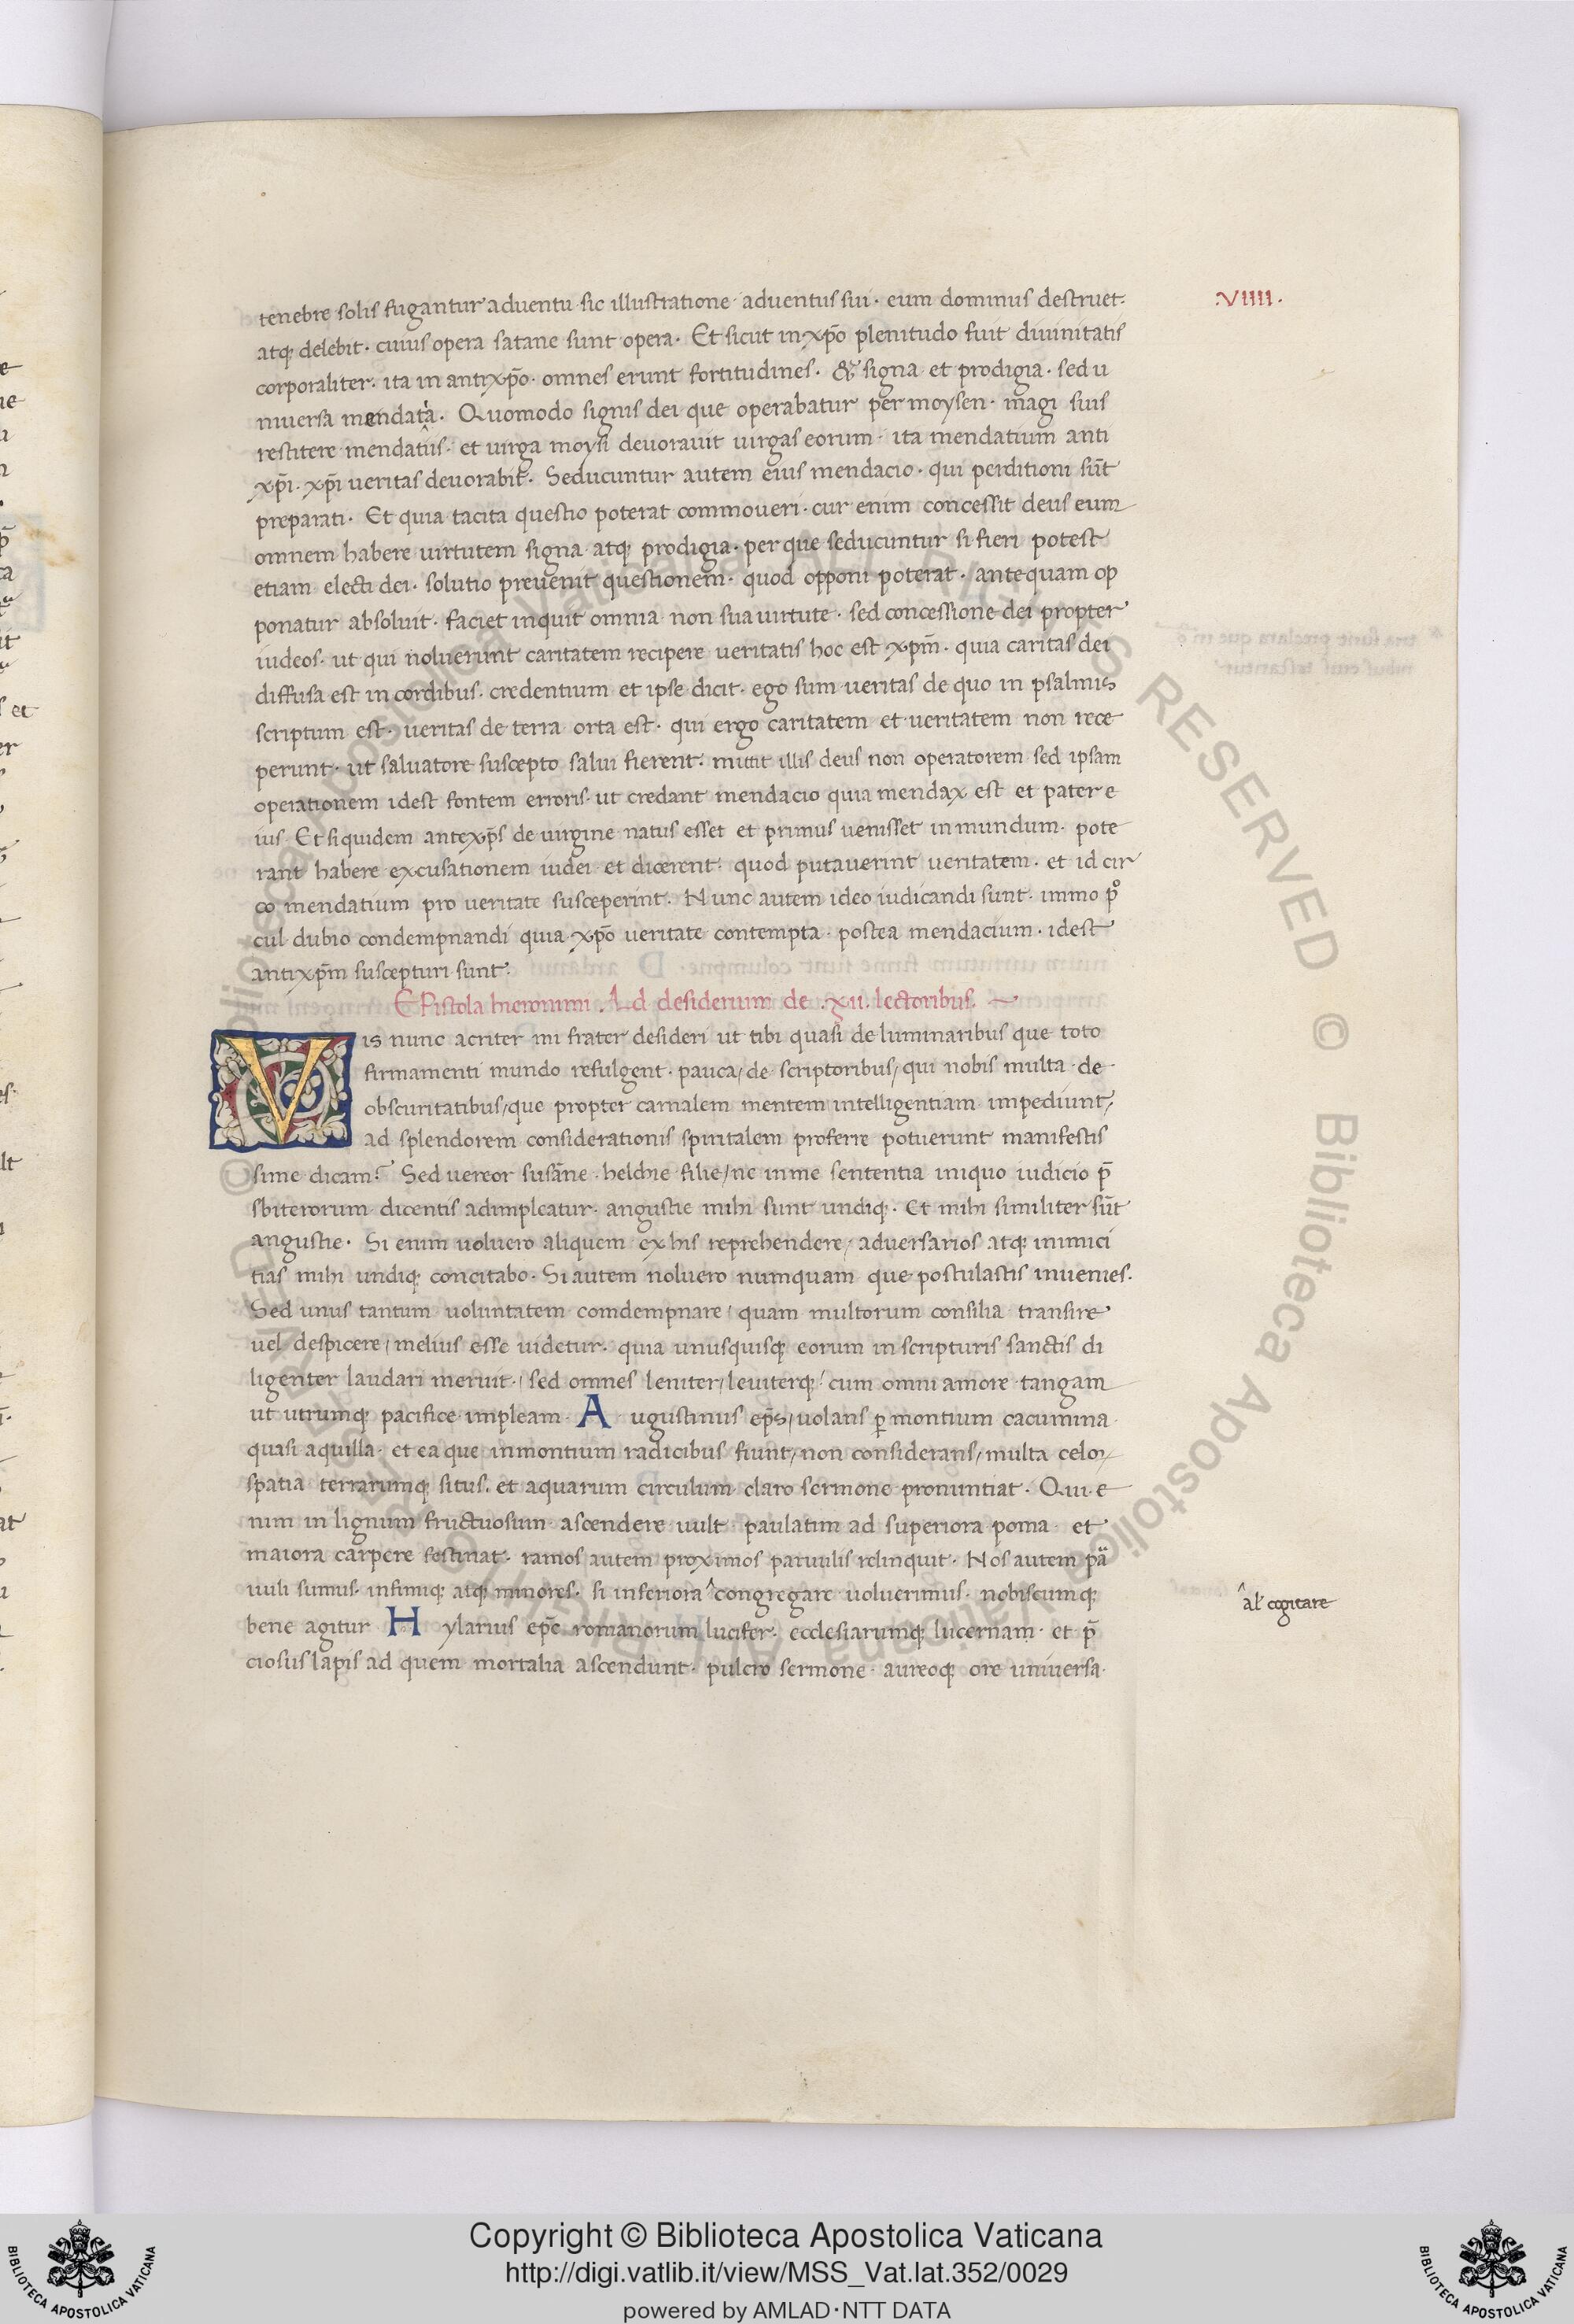 tenebre solis fugantur aduentu sic illustratione aduentus sui · eum dominus destruet·
.VIIII.
atq; delebit · cuius opera satane sunt opera · Et sicut in xp̄o plenitudo fuit diuinitatis
corporaliter · ita in antixp̄o · omnes erunt fortitudines · & signa et prodigia · sed u
niuersa mendatia · Quomodo signis dei que operabatur per moysen · magi suis
restitere mendatiis · et uirga moysi deuorauit uirgas eorum · ita mendatium anti
xp̄i · xp̄i ueritas deuorabit · Seducuntur autem eius mendacio · qui perditioni sūt
preparati · Et quia tacita questio poterat commoueri · cur enim concessit deus eum
omnem habere uirtutem signa atq; prodigia · per que seducuntur si fieri potest
etiam electi dei · solutio preuenit questionem · quod opponi poterat · antequam op
ponatur absoluit · faciet inquit omnia non sua uirtute · sed concessione dei propter
iudeos · ut qui noluerunt caritatem recipere ueritatis hoc est xp̄m · quia caritas dei
diffusa est in cordibus · credentium et ipse dicit · ego sum ueritas de quo in psalmis
scriptum est · ueritas de terra orta est · qui ergo caritatem et ueritatem non rece
perunt · ut saluatore suscepto salui fierent · mittit illis deus non operatorem sed ipsam
operationem idest fontem erroris · ut credant mendacio quia mendax est et pater e
ius · Et siquidem antexp̄s de uirgine natus esset et primus uenisset in mundum · pote
rant habere excusationem iudei et dicerent · quod putauerint ueritatem · et id cir
co mendatium pro ueritate susceperint · Nunc autem ideo iudicandi sunt · immo p̊
cul dubio condempnandi quia xp̄o ueritate contempta · postea mendacium · idest
antixp̄m suscepturi sunt ·
EPistola hieronimi . Ad desiderium de .xii. lectoribus.
Vis nunc acriter mi frater desideri ut tibi quasi de luminaribus que toto
firmamenti mundo refulgent · pauca / de scriptoribus / qui nobis multa de
obscuritatibus / que propter carnalem mentem intelligentiam impediunt /
ad splendorem considerationis spiritalem proferre potuerunt manifestis
sime dicam? Sed uereor susāne · helchie filie / ne in me sententia iniquo iudicio p̄
sbiterorum dicentis adimpleatur · angustie mihi sunt undiq; · Et mihi similiter sūt
angustie · Si enim uoluero aliquem ex his reprehendere / aduersarios atq; inimici
tias mihi undiq; concitabo · Si autem noluero numquam que postulastis inuenies ·
Sed unus tantum uoluntatem comdempnare / quam multorum consilia transire
uel despicere / melius esse uidetur · quia unusquisq; eorum in scripturis sanctis di
ligenter laudari meruit · / sed omnes leniter / leuiterq; / cum omni amore tangam
ut utrumq; pacifice impleam · Augustinus ep̄s / uolans ꝑ montium cacumina
quasi aquilla · et ea que in montium radicibus fiunt / non considerans / multa celoꝝ
spatia terrarumq; situs · et aquarum circulum claro sermone pronuntiat · Qui e
nim in lignum fructuosum ascendere uult paulatim ad superiora poma et
maiora carpere festinat · ramos autem proximos paruulis relinquit · Nos autem pa
uuli sumus · infimiq; atq; minores · si inferiora ^congregare uoluerimus · nobiscumq;
^al' cogitare
bene agitur Hylarius ep̄c romanorum lucifer · ecclesiarumq; lucernam · et p̄
ciosus lapis ad quem mortalia ascendunt · pulcro sermone aureoq; ore uniuersa ·
Copyright © Biblioteca Apostolica Vaticana
http://digi.vatlib.it/view/MSS_Vat.lat.352/0029
powered by AMLAD·NTT DATA
BIBLIOTECA APOSTOLICA VATICANA
BIBLIOTECA APOSTOLICA VATICANA